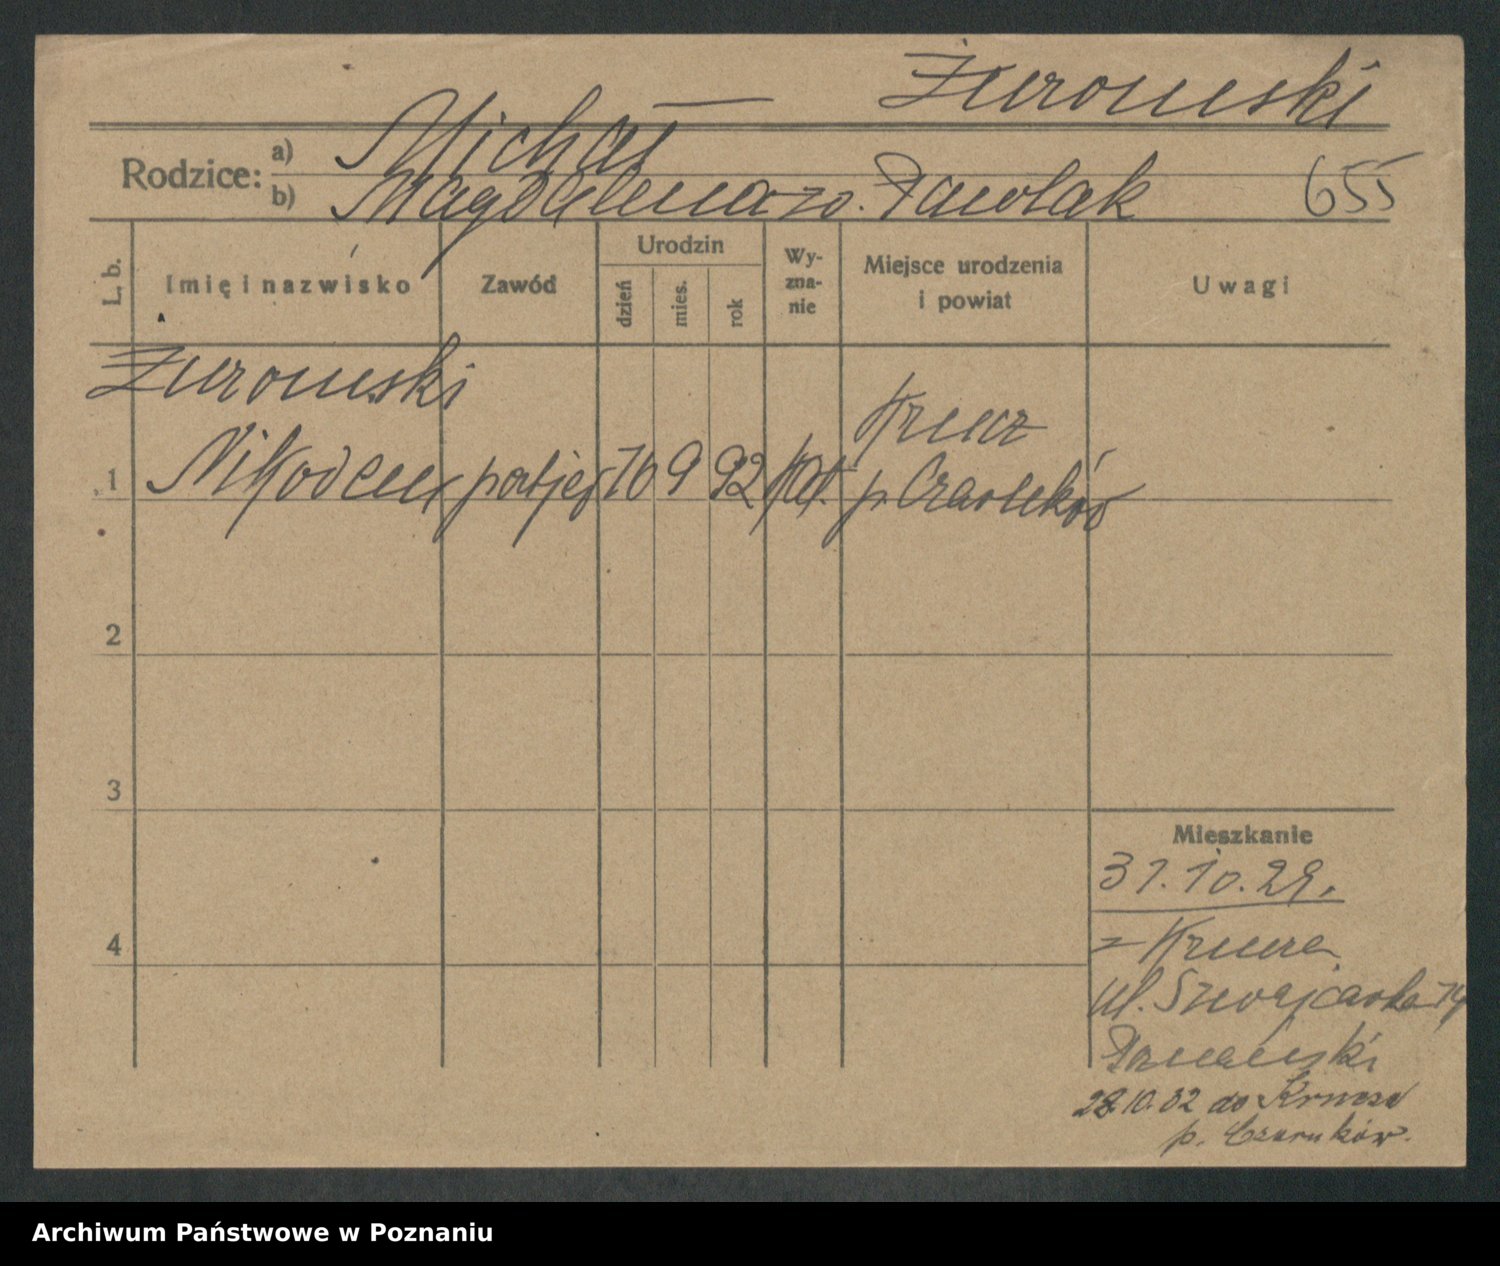 Żurowski
Rodzice:
a) Michał
b) Magdalena zo. Pawlak
655
L. b.
Imię i nazwisko
Zawód
Urodzin
dzień
mies.
rok
Wy-
zna-
nie
Miejsce urodzenia
i powiat
Uwagi
Żurowski
1 Nikodem portjer 10 9 92 kat.
Krucz
p. Czarnków
2
3
4
Mieszkanie
31.10.29.
z Krucza
ul. Szwajcarska 14
28.10.32 do Krucza
p. Czarnków.
Archiwum Państwowe w Poznaniu